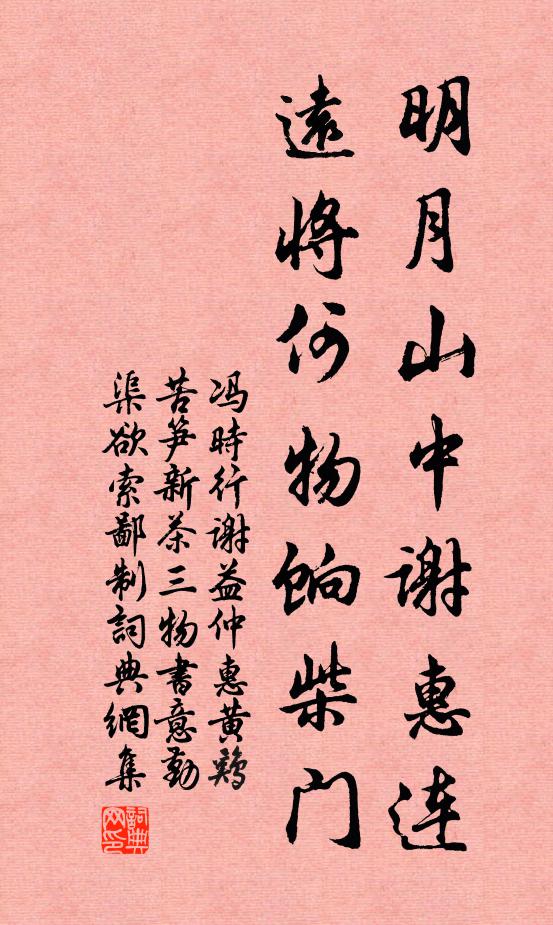 明月山中谢惠连
遠将何物餉柴门
冯時行谢益仲惠黄鷄
苦笋新茶三物書意勤
渠欲索鄙制詞典網集
詞典网印